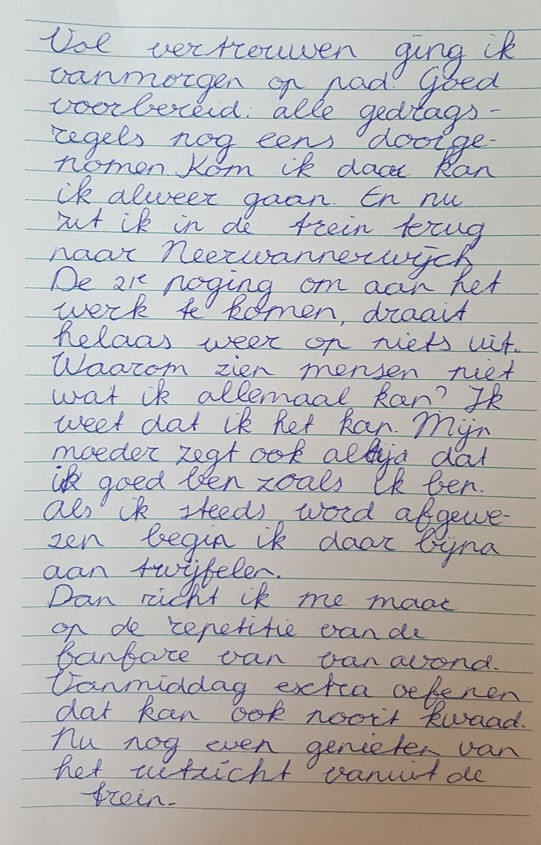 Vol vertrouwen ging ik
vanmorgen op pad. Goed
voorbereid: alle gedrags-
regels nog eens doorge-
nomen. Kom ik daar kan
ik alweer gaan. En nu
zit ik in de trein terug
naar Neerwannerwijck
De 21e poging om aan het
werk te komen, draait
helaas weer op niets uit.
Waarom zien mensen niet
wat ik allemaal kan? Ik
weet dat ik het kan. Mijn
moeder zegt ook altijd dat
ik goed ben zoals ik ben.
Als ik steeds word afgewe-
zen begin ik daar bijna
aan twijfelen.
Dan richt ik me maar
op de repetitie van de
fanfare van vanavond.
Vanmiddag extra oefenen
dat kan ook nooit kwaad.
Nu nog even genieten van
het uitzicht vanuit de
trein.